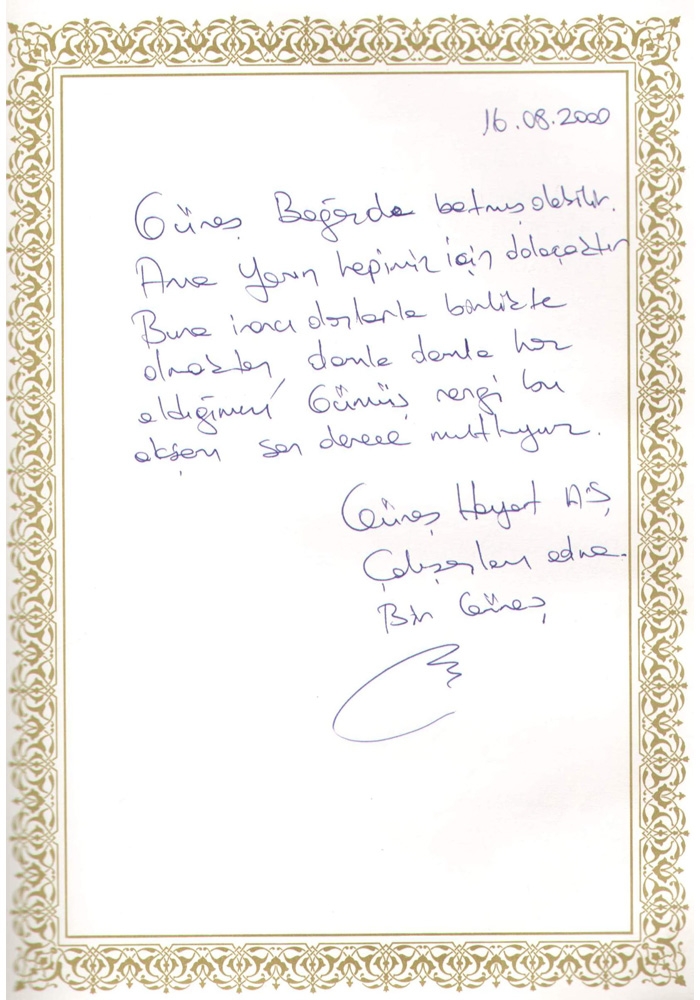 16.08.2000
Güneş Boğazda batmış olabilir.
Ama Yarın hepimiz için doğacaktır
Buna inancı dostlarla birlikte
olmaktan, damla damla haz
aldığımız Gümüş rengi bu
akşam son derece mutluyuz.
Güneş Hayat A.Ş
Çalışanları adına.
Bir Güneş